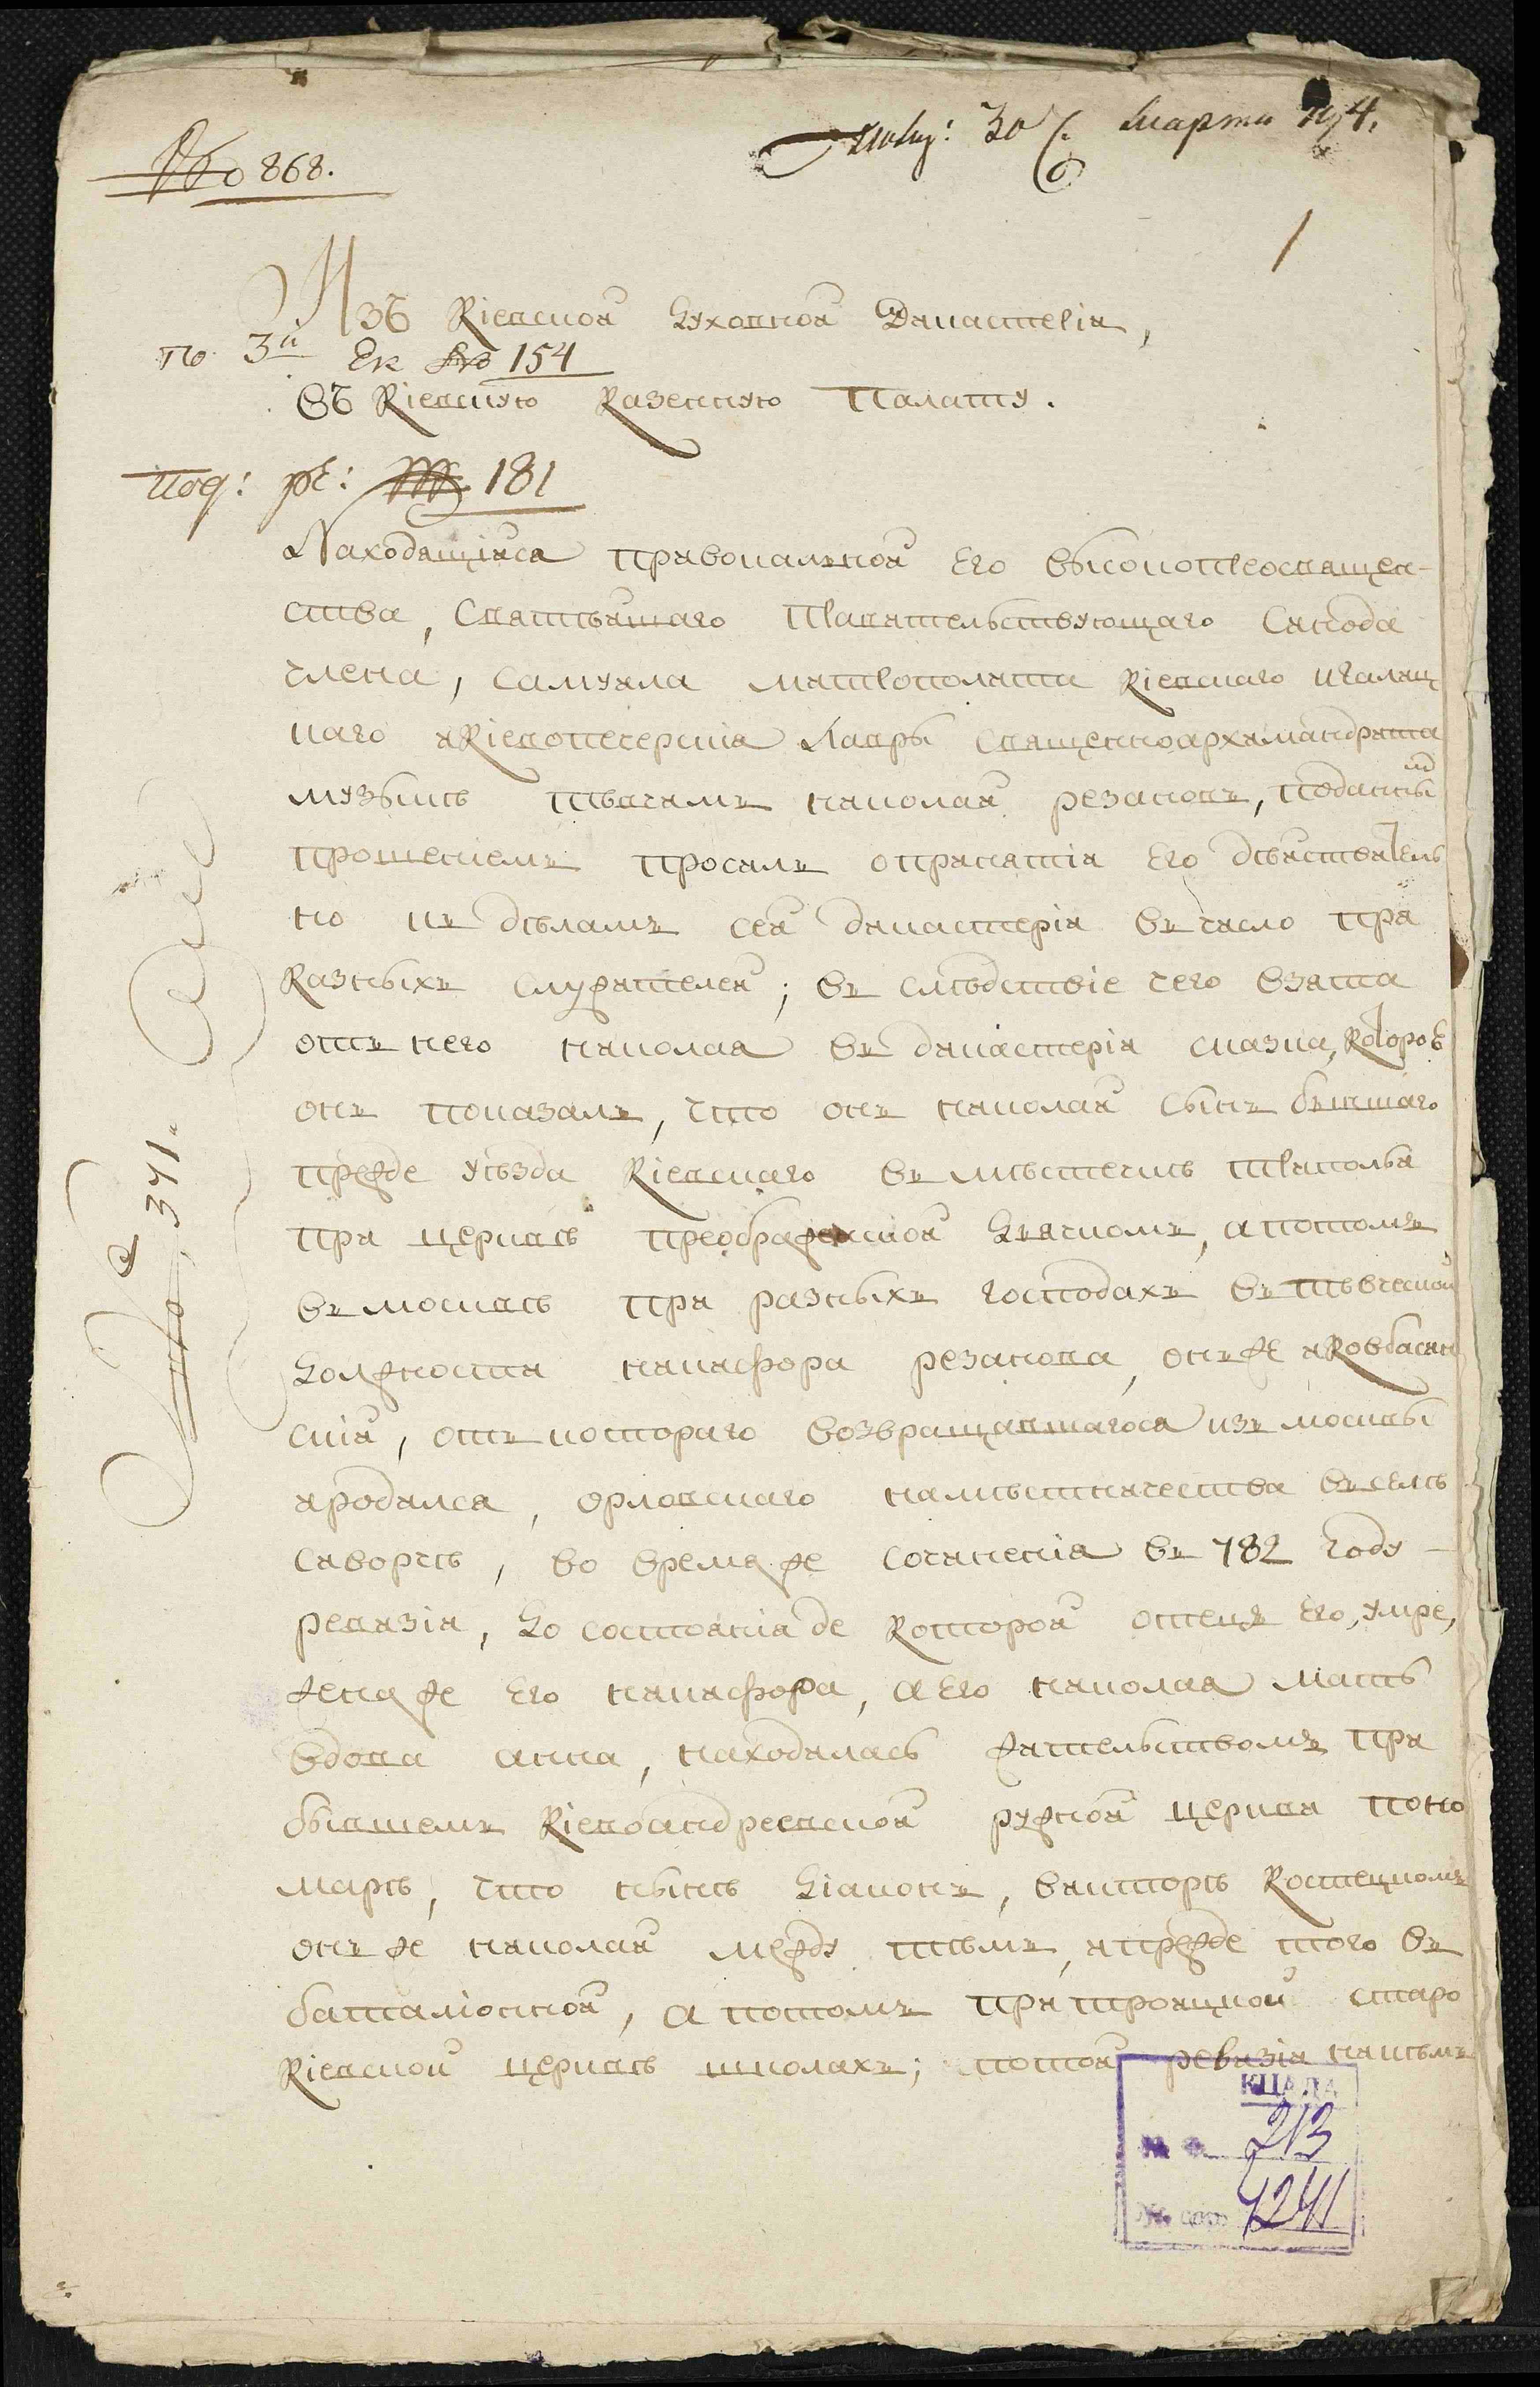 № 868.
30 Марта 174.
1
Изъ Кіевской Духовной Дикастеріи,
по 3й Ек № 154
въ Кіевскую Казенную Палату.
под: ре: № 181
Находящійся приводимой Его высокопреосвящен-
ства, святѣйшаго правительствующаго Синода
члена, Самуила митрополита Кіевскаго игалиц
каго икіевопечерскія лавры священноархимандрита
музыкѣ пѣвчимъ николай резановъ, поданнымъ
прошеніемъ просилъ опринятіи Его дѣйствитель
но къ дѣламъ сей дикастеріи въ число при
казныхъ служителей; въ слѣдствіе чего взята
отъ него николая въ дикастеріи сказка, которою
онъ показалъ, что онъ николай сынъ бывшаго
прежде уѣзда Кіевскаго въ мѣстечкѣ трипольи
при церквѣ преображенской дьячкомъ, а потомъ
въ москвѣ при разныхъ господахъ въ пѣвческой
должности никифора резанова, онъ же иковбасин
скій, отъ котораго возвращавшагося изъ москвы
иродился, орловскаго намѣстничества въ селѣ
сиворчѣ, во время же сочиненія въ 782 году
ревизіи, до состоянія де которой отецъ его, умре,
жена же его никифора, а его николая мать
вдова анна, находилась жительствомъ при
бывшемъ Кіевоандреевской ружной церкви поно
марѣ, что нынѣ діаконъ, викторѣ костецкомъ
онъ же николай между тѣмъ, ипрежде того въ
баталіонной, а потомъ при троицкой старо
Кіевской церквѣ школахъ; потой ревизіи никѣмъ
№ 371.
КЦАДА
№ ф. 213
№ 1241